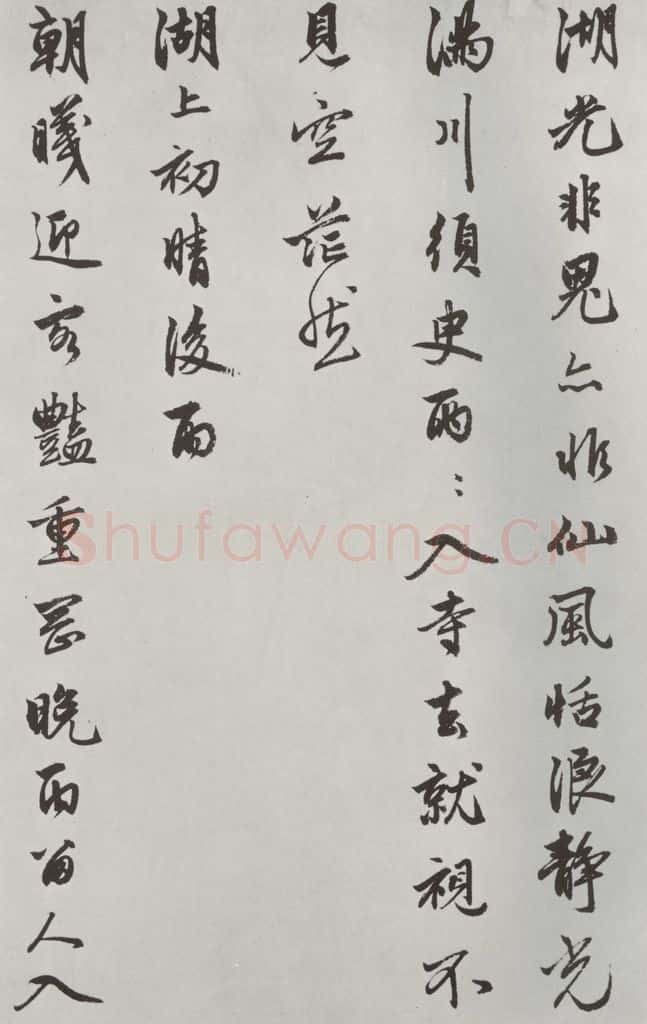 湖光非鬼亦非仙風恬浪靜光
滿川須臾兩〻入寺去就視不
見空茫然
湖上初晴後雨
朝曦迎客豔重岡晚雨留人入
Shufawang.CN